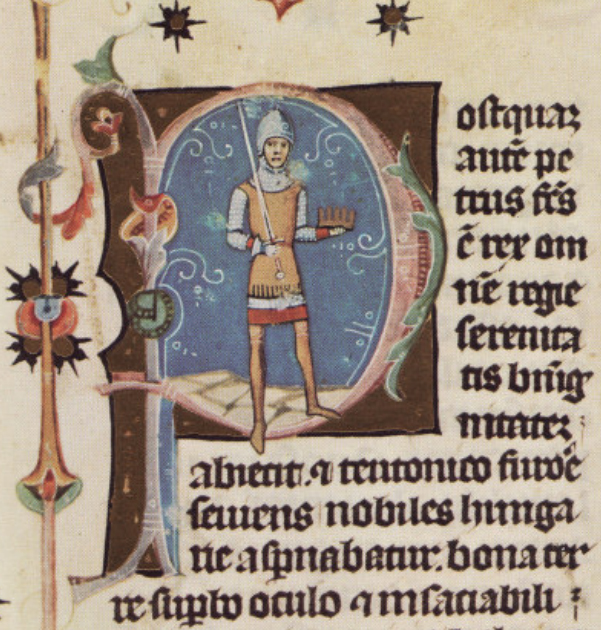 Poſtquaꝫ
autē pe
trus fc̄s
ē rex om
nē regie
ſerenita
tis bnīg
nitateꝫ
abiecit. ⁊ teutonico furoē
ſeuiens nobiles hunga
rie aſpnabatur. bona ter
re ſupbo oculo ⁊ inſaciabili